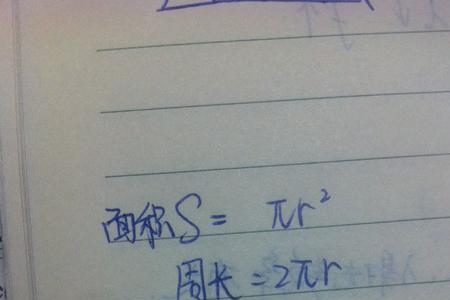 面称S= πr²
周长=2πr